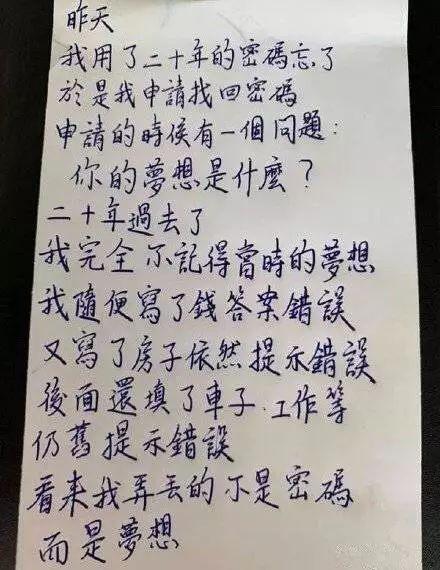 昨天
我用了二十年的密碼忘了
於是我申請找回密碼
申請的時侯有一個問題：
你的夢想是什麼？
二十年過去了
我完全不記得當時的夢想
我隨便寫了錢答案錯誤
又寫了房子依然提示錯誤
後面還填了車子.工作等
仍舊提示錯誤
看来我弄丟的不是密碼
而是夢想